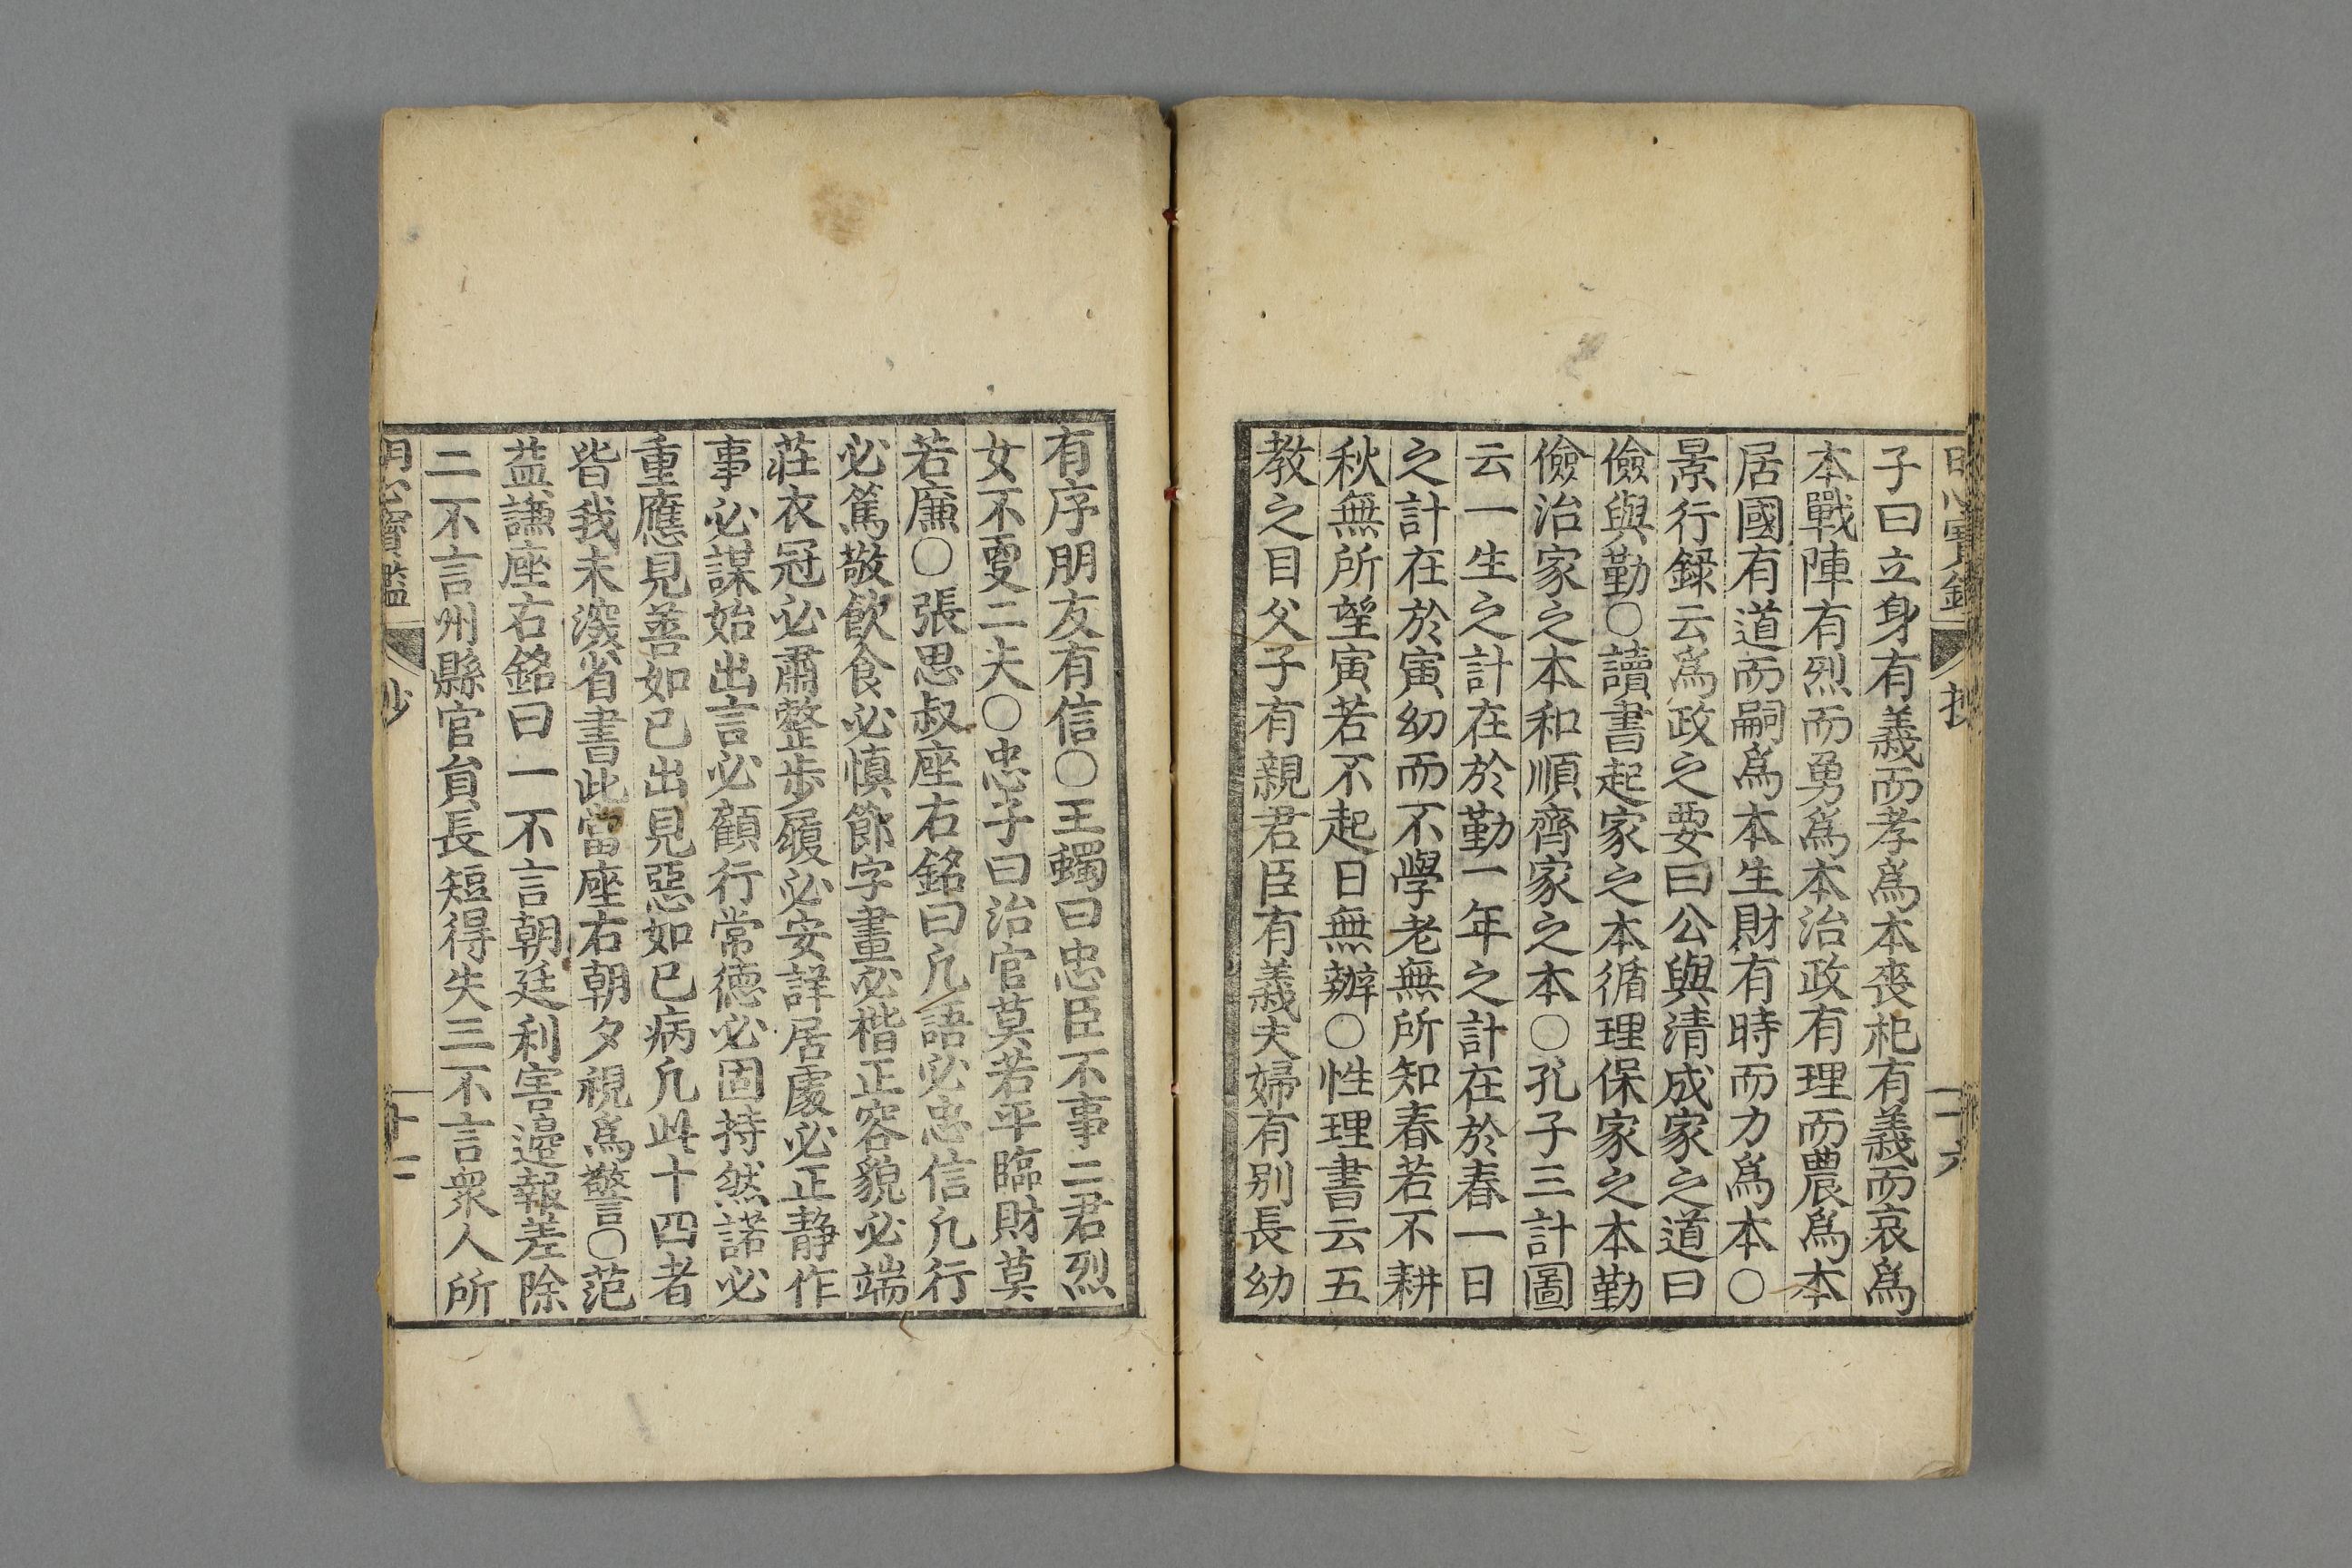 明心寶鑑 抄 二十六
子曰立身有義而孝爲本喪祀有義而哀爲
本戰陣有烈而勇爲本治政有理而農爲本
居國有道而嗣爲本生財有時而力爲本○
景行録云爲政之要曰公與清成家之道曰
儉與勤○讀書起家之本循理保家之本勤
儉治家之本和順齊家之本○孔子三計圖
云一生之計在於勤一年之計在於春一日
之計在於寅幼而不學老無所知春若不耕
秋無所望寅若不起日無辦○性理書云五
教之目父子有親君臣有義夫婦有别長幼
有序朋友有信○王蠋曰忠臣不事二君烈
女不更二夫○忠子曰治官莫若平臨財莫
若廉○張思叔座右銘曰凡語必忠信凡行
必篤敬飲食必慎節字畫必楷正容貌必端
莊衣冠必肅整步履必安詳居處必正静作
事必謀始出言必顧行常德必固持然諾必
重應見善如已出見惡如已病凡此十四者
皆我未深省書此當座右朝夕視爲警○范
益謙座右銘曰一不言朝廷利害邊報差除
二不言州縣官員長短得失三不言衆人所
明心寶鑑 抄